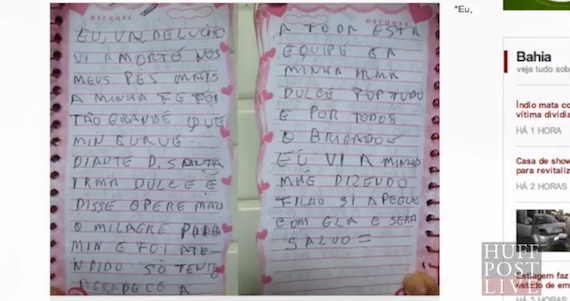 "Eu,
DIFOQUE
EU, VALDELUCIO
VI A MORTE NOS
MEUS PES MAIS
A MINHA FE FOI
TÃO GRANDE QUE
MIN CURVE
DIANTE D, SANTA
IRMA DULCE E
DISSE OPERE MAIS
O MILAGRE PARA
MIN E FOI ATE
NDIDO SO TENHO
AGRADECE A
A TODA ESTA
EQUIPE E A
MINHA IRMA
DULCE POR TUDO
E POR TODOS
O BRIGADO
EU VI A MINHA
MÃE DIZENDO
FILHO SI APEGUE
COM ELA E SERA
SALVO =
Bahia
veja tudo sob
Índio mata co
vítima dividia
HÁ 1 HORA
Casa de show
para revitaliz
HÁ 2 HORAS
Estiagem faz
estado de em
HÁ 3 HORAS
HUFF
POST
LIVE